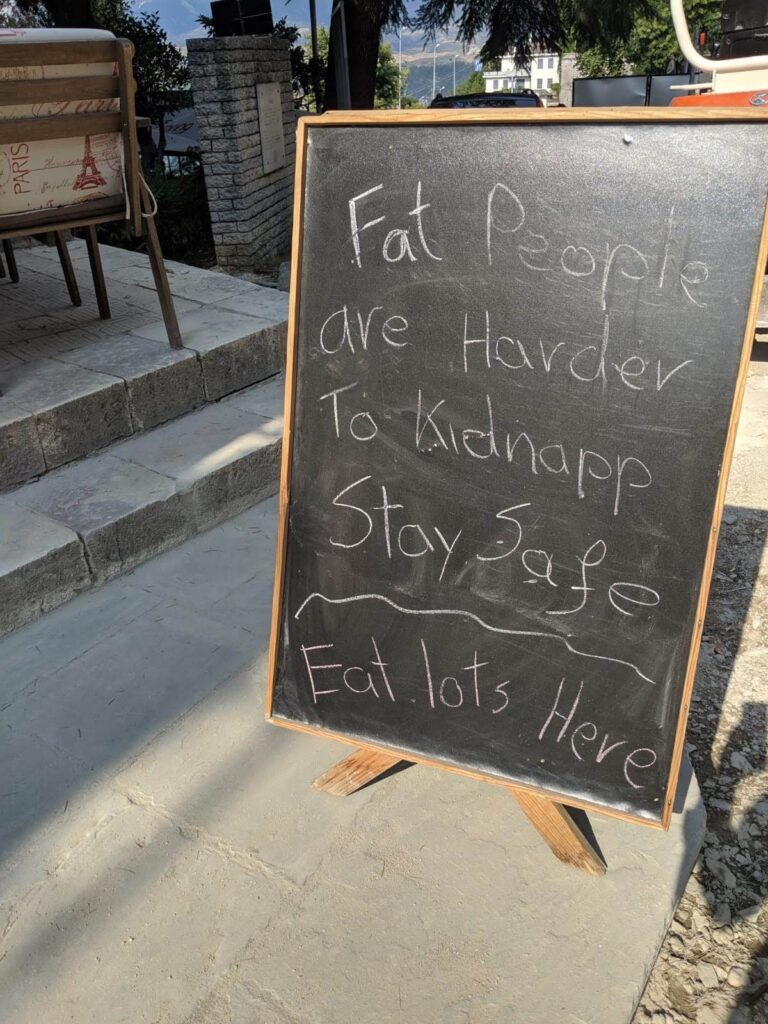 Fat People
are Harder
To Kidnapp
Stay Safe
Eat lots Here
PARIS